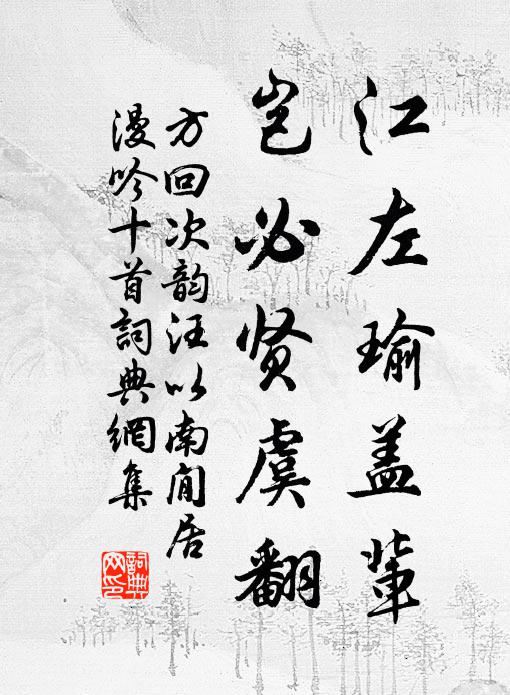 江左瑜盖辈
岂必贤虞翻
方回次韵汪以南闲居
漫吟十首詞典網集
詞典网印